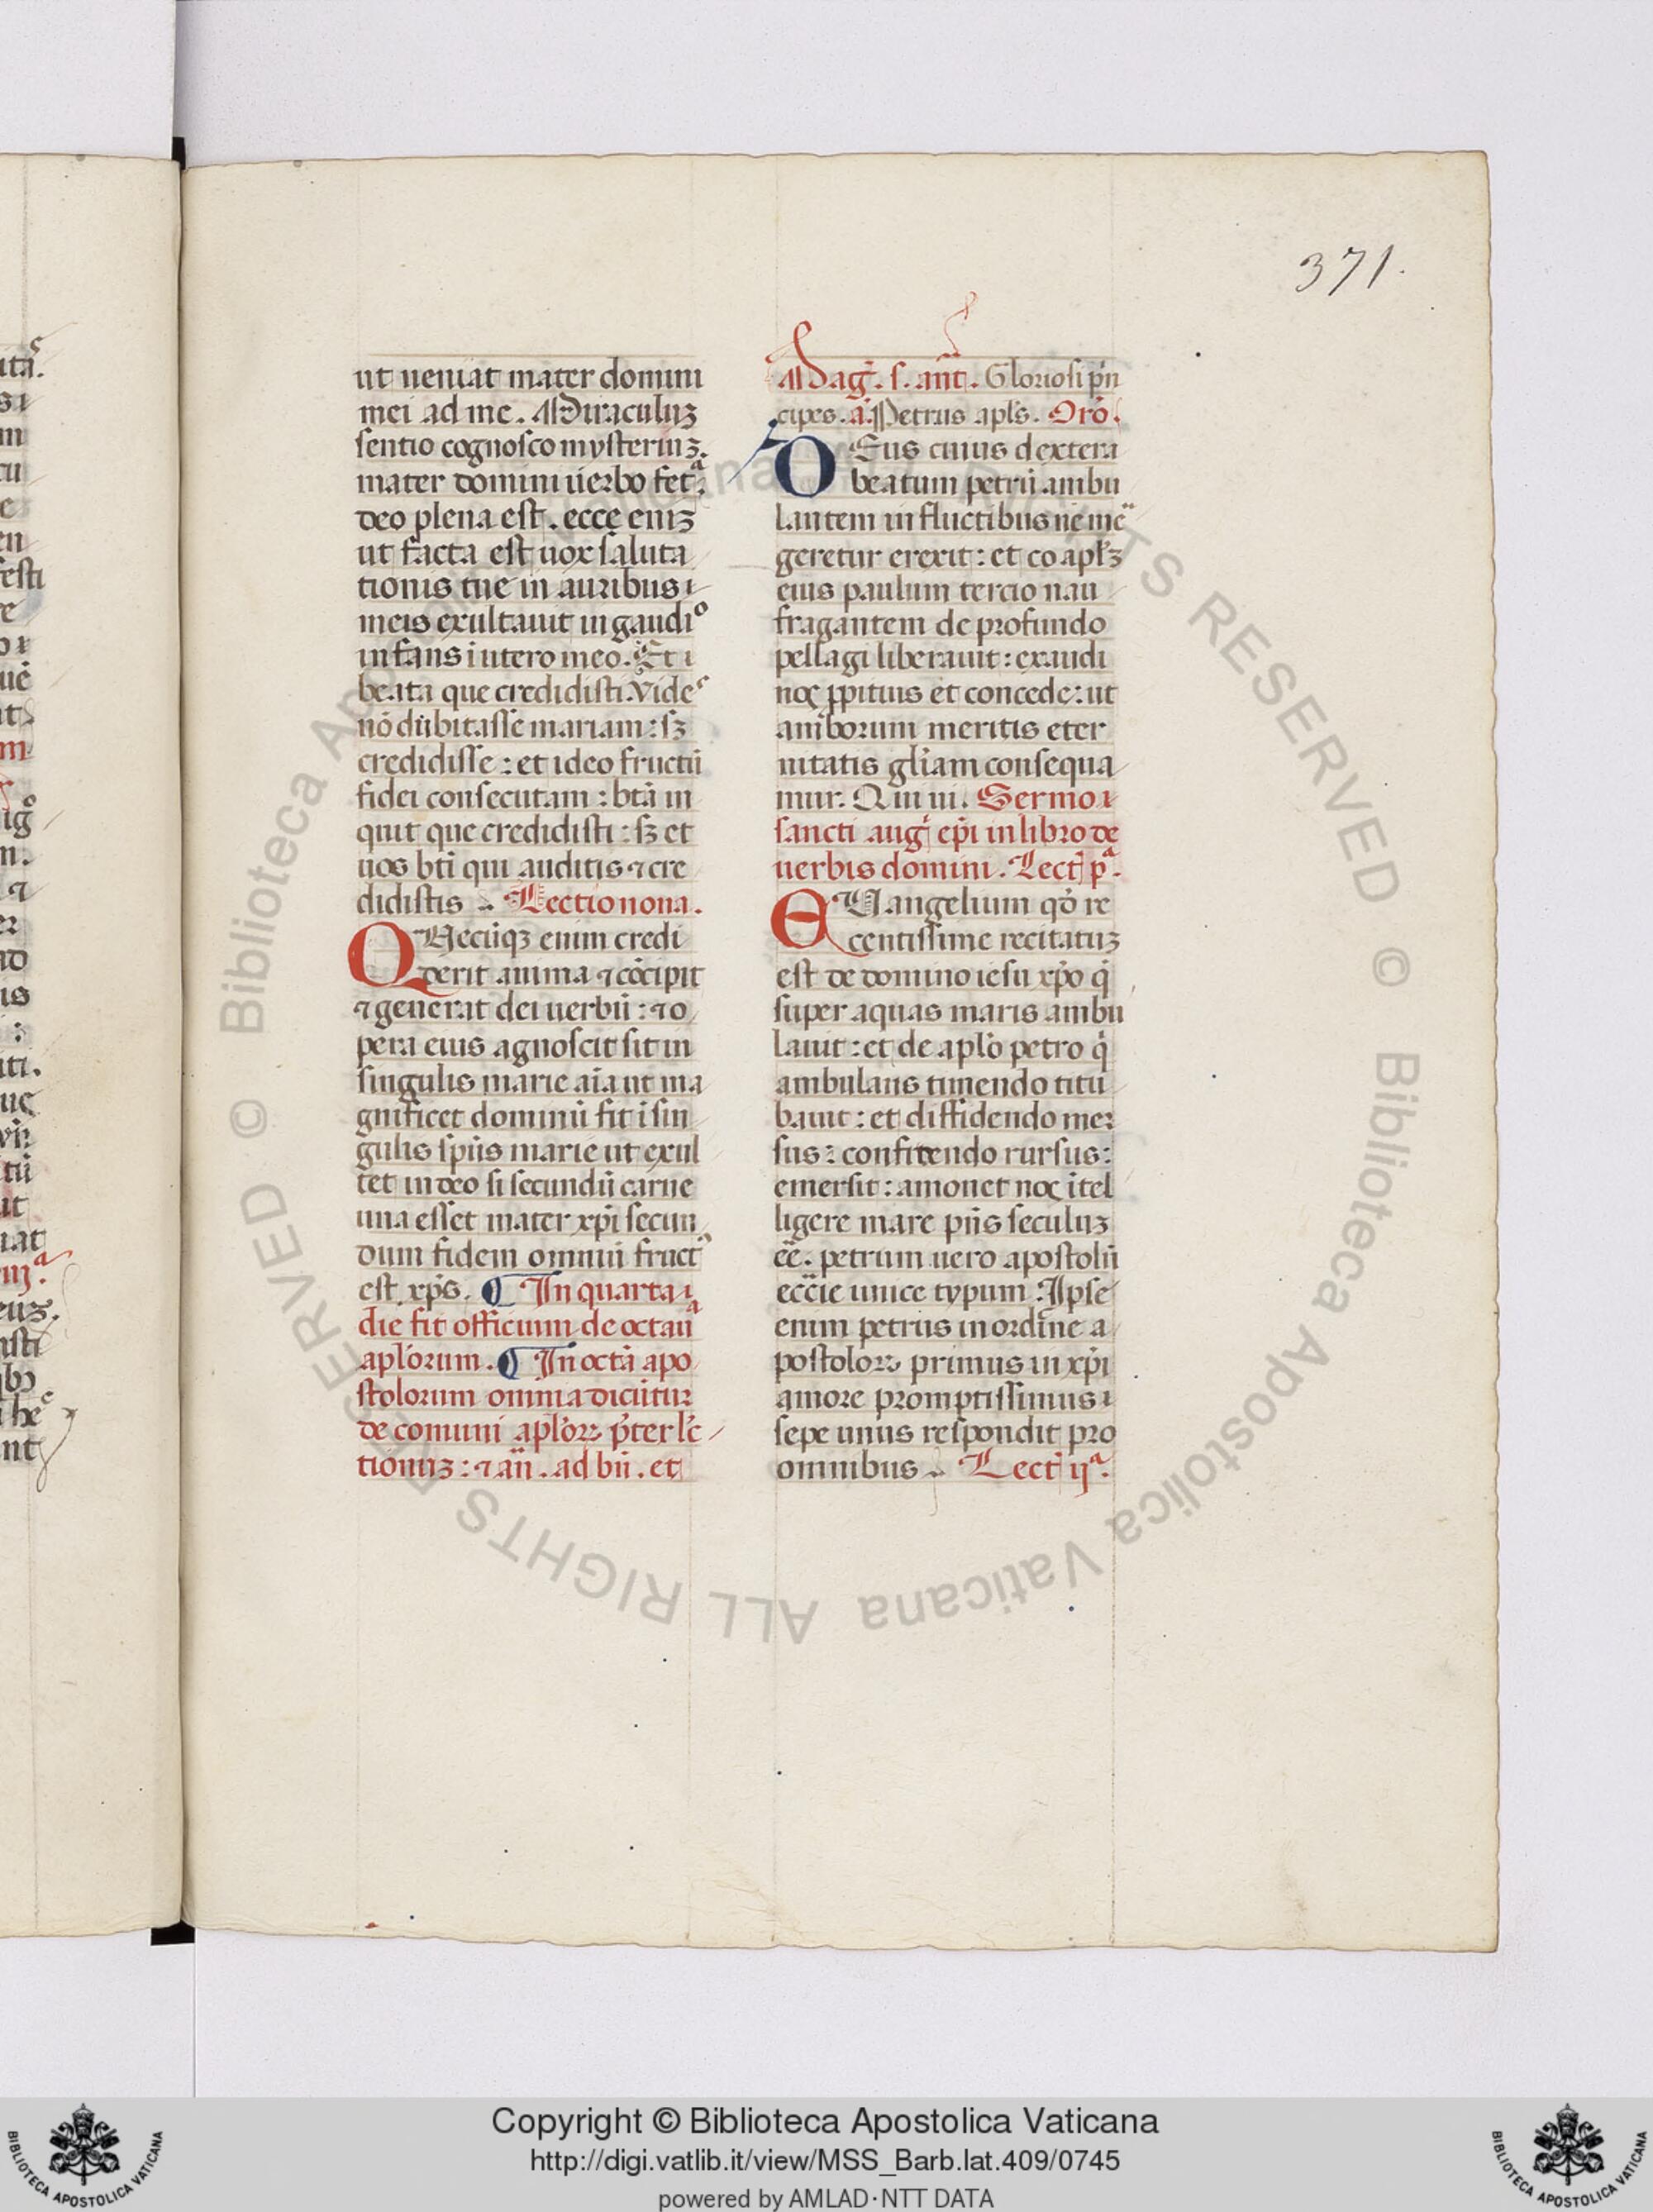 371.
ut ueniat mater domini
mei ad me. Miraculuʒ
sentio cognosco mysteriuʒ.
mater domini uerbo fetᵃ.
deo plena est. ecce eniʒ
ut facta est uox saluta
tionis tue in auribus
meis exultauit in gaudiº
infans ī utero meo. Et
beata que credidisti. Videˢ
nō dubitasse mariam: sʒ
credidisse: et ideo fructū
fidei consecutam: btā in
quit que credidisti: sʒ et
uos bti qui auditis ⁊ cre
didistis. Lectio nona.
QUecūqʒ enim credi
derit anima ⁊ cōcipit
⁊ generat dei uerbū: ⁊ o
pera eius agnoscit sit in
singulis marie aīa ut ma
gnificet dominū sit ī sin
gulis spūs marie ut exul
tet in deo si secundū carne
una esset mater xpī secun
dum fidem omniū fructᵘ
est xp̄s. ¶ In quarta
die fit officium de octauᵃ
aplōrum. ¶ In octā apo
stolorum omnia dicūtur
de comuni aplōꝝ p̄ter lc̄
tionuʒ: ⁊ an̄. ad bn̄. et
Maḡ. s. ant̄. Gloriosi pⁱn
cipes. a. Petrus apls̄. Orō.
DEus cuius dextera
beatum petrū ambu
lantem in fluctibus ne mē
geretur erexit: et coapl̄ʒ
eius paulum tercio nau
fragantem de profundo
pellagi liberauit: exaudi
noς ꝓpitius et concede: ut
amborum meritis eter
nitatis gl̄iam consequa
mur. Qui ui. Sermo
sancti auḡ epī in libro de
uerbis domini. Lect̄ pᵃ.
EUangelium qḋ re
centissime recitatuʒ
est de domino iesu xp̄o qͥ
super aquas maris ambu
lauit: et de aplō petro qͥ
ambulans timendo titu
bauit: et diffidendo mer
sus: confitendo rursus:
emersit: amonet noς ītel
ligere mare pn̄s seculuʒ
eē. petrum uero apostolū
ecc̄ie unice typum. Ipse
enim petrus in ordine a
postoloꝝ primus in xpī
amore promptissimus
sepe unus respondit pro
omnibus. Lect̄ ijᵃ.
Copyright © Biblioteca Apostolica Vaticana
http://digi.vatlib.it/view/MSS_Barb.lat.409/0745
powered by AMLAD·NTT DATA
BIBLIOTECA APOSTOLICA VATICANA
BIBLIOTECA APOSTOLICA VATICANA
© Biblioteca Apostolica Vaticana ALL RIGHTS RESERVED © Biblioteca Apostolica Vaticana ALL RIGHTS RESERVED